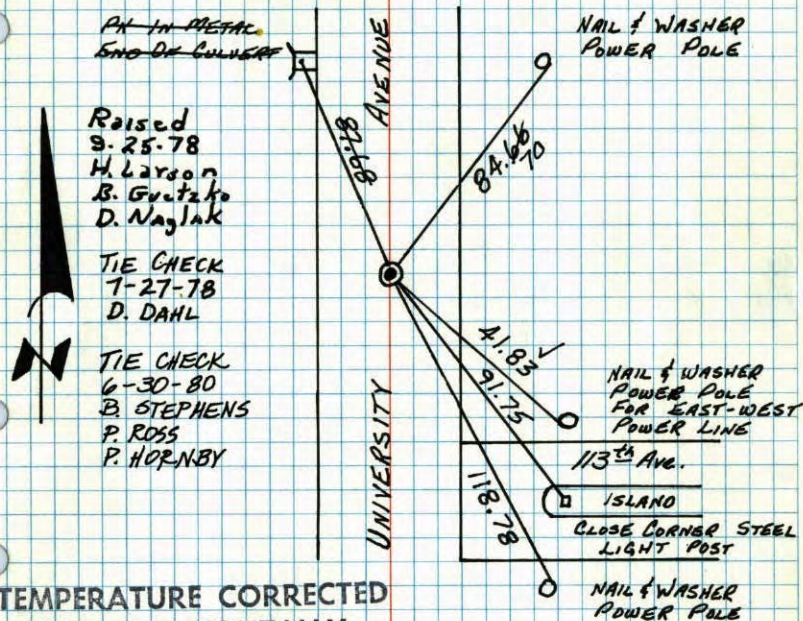 PK IN METAL
END OF CULVERT
NAIL & WASHER
POWER POLE
AVENUE
Raised
9-25-78
H. Larson
B. Guetzko
D. Naglak
89.78
84.66
70
TIE CHECK
7-27-78
D. DAHL
TIE CHECK
6-30-80
B. STEPHENS
P. ROSS
P. HORNBY
N
41.83 ✓
91.75
118.78
UNIVERSITY
NAIL & WASHER
POWER POLE
FOR EAST-WEST
POWER LINE
113th AVE.
ISLAND
CLOSE CORNER STEEL
LIGHT POST
NAIL & WASHER
POWER POLE
TEMPERATURE CORRECTED